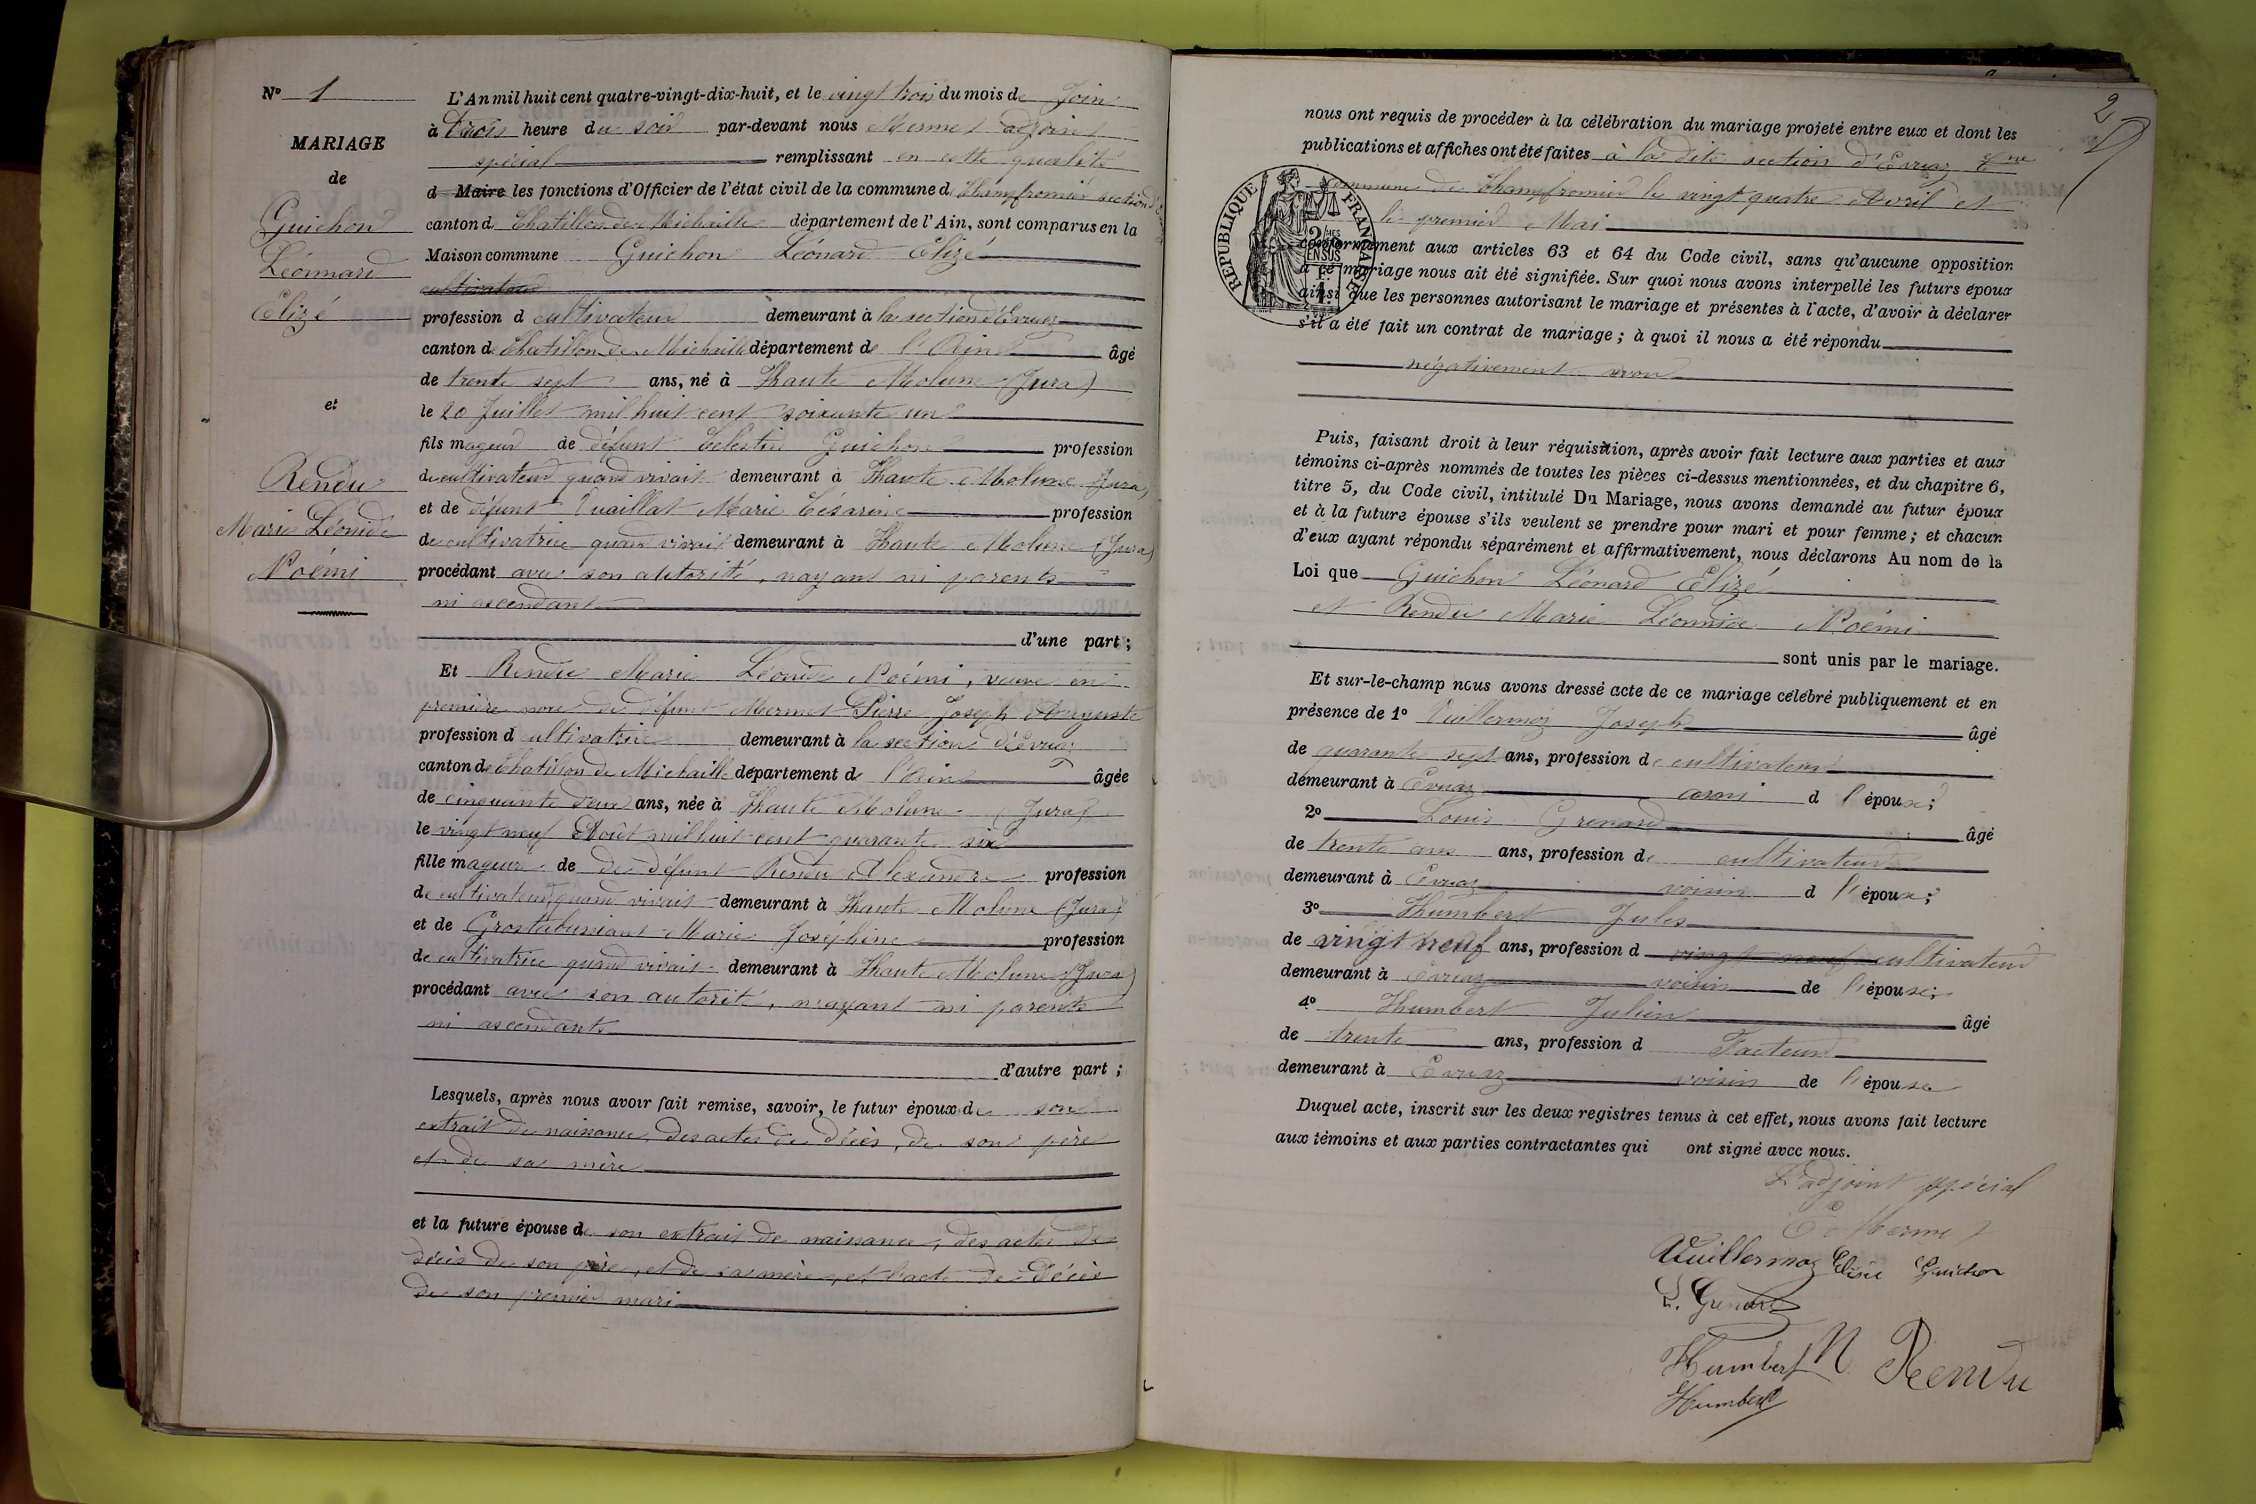 N° 1
MARIAGE
de
Guichon
Léonnard
Elizé
et
Rendu
Marie Léonide
Noémi
L'An mil huit cent quatre-vingt-dix-huit, et le vingt trois du mois de Join
à trois heure du soir par-devant nous Mermet adjoint
spécial remplissant en cette qualité
d Maire les fonctions d'Officier de l'état civil de la commune de Champfromier section
canton d Chatillon de Michaille département de l'Ain, sont comparus en la
Maison commune Guichon Léonard Elizé
cultivateur
profession d cultivateur demeurant à la section d'Evruaz
canton de Chatillon de Michaille département de l'Ain âgé
de trente sept ans, né à Haute Molune (Jura)
le 20 Juillet mil huit cent soixante un
fils mageur de défunt Celestin Guichon profession
de cultivateur quand vivait demeurant à Haute Molune Jura)
et de défunt Vuaillat Marie Césarine profession
de cultivatrice quand vivait demeurant à Haute Molune (Jura)
procédant avec son autorité, nayant ni parents
ni ascendant
d'une part ;
Et Rendu Marie Léonide Noémi, veuve en
première noce de défunt Mermet Pierre Joseph Auguste
profession d cultivatrice demeurant à la section d'Evruaz
canton de Chatillon de Michaille département de l'Ain âgée
de cinquante deux ans, née à Haute Molune (Jura)
le vingt neuf Août mil huit cent quarante six
fille mageure de de défunt Rendu Alexandre profession
de cultivateur quand vivait demeurant à Haute Molune (Jura)
et de Grostabussiat Marie Joséphine profession
de cultivatrice quand vivait demeurant à Haute Molune (Jura)
procédant avec son autorité, n'ayant ni parents
ni ascendants
d'autre part ;
Lesquels, après nous avoir fait remise, savoir, le futur époux de son
extrait de naissance, des actes de décès, de son père
et de sa mère
et la future épouse de son extrait de naissance, des actes de
décès de son père, et de sa mère, et l'acte de décès
de son premier mari
2
nous ont requis de procéder à la célébration du mariage projeté entre eux et dont les
publications et affiches ont été faites à la dite section d'Evruaz
commune de Champfromier le vingt quatre Avril et
le premier Mai
RÉPUBLIQUE FRANÇAISE
conformément aux articles 63 et 64 du Code civil, sans qu'aucune opposition
à ce mariage nous ait été signifiée. Sur quoi nous avons interpellé les futurs époux
ainsi que les personnes autorisant le mariage et présentes à l'acte, d'avoir à déclarer
s'il a été fait un contrat de mariage ; à quoi il nous a été répondu
négativement
Puis, faisant droit à leur réquisition, après avoir fait lecture aux parties et aux
témoins ci-après nommés de toutes les pièces ci-dessus mentionnées, et du chapitre 6,
titre 5, du Code civil, intitulé Du Mariage, nous avons demandé au futur époux
et à la future épouse s'ils veulent se prendre pour mari et pour femme ; et chacun
d'eux ayant répondu séparément et affirmativement, nous déclarons Au nom de la
Loi que Guichon Léonard Elizé
et Rendu Marie Léonnide Noémi
sont unis par le mariage.
Et sur-le-champ nous avons dressé acte de ce mariage célébré publiquement et en
présence de 1° Vuillermoz Joseph âgé
de quarante sept ans, profession de cultivateur
demeurant à Evruaz ami d l'épouse;
2° Louis Grenard âgé
de trente ans ans, profession de cultivateur
demeurant à Evruaz voisin d l'épouse;
3° Humbert Jules
de vingt neuf ans, profession d vingt neuf cultivateur
demeurant à Evruaz voisin de l'épouse;
4° Humbert Julien âgé
de trente ans, profession d Facteur
demeurant à Evruaz voisin de l'épouse
Duquel acte, inscrit sur les deux registres tenus à cet effet, nous avons fait lecture
aux témoins et aux parties contractantes qui ont signé avec nous.
L'adjoint spécial
Mermet
Vuillermoz Elisée Guichon
L. Grenard
Humbert N Rendu
Humbert